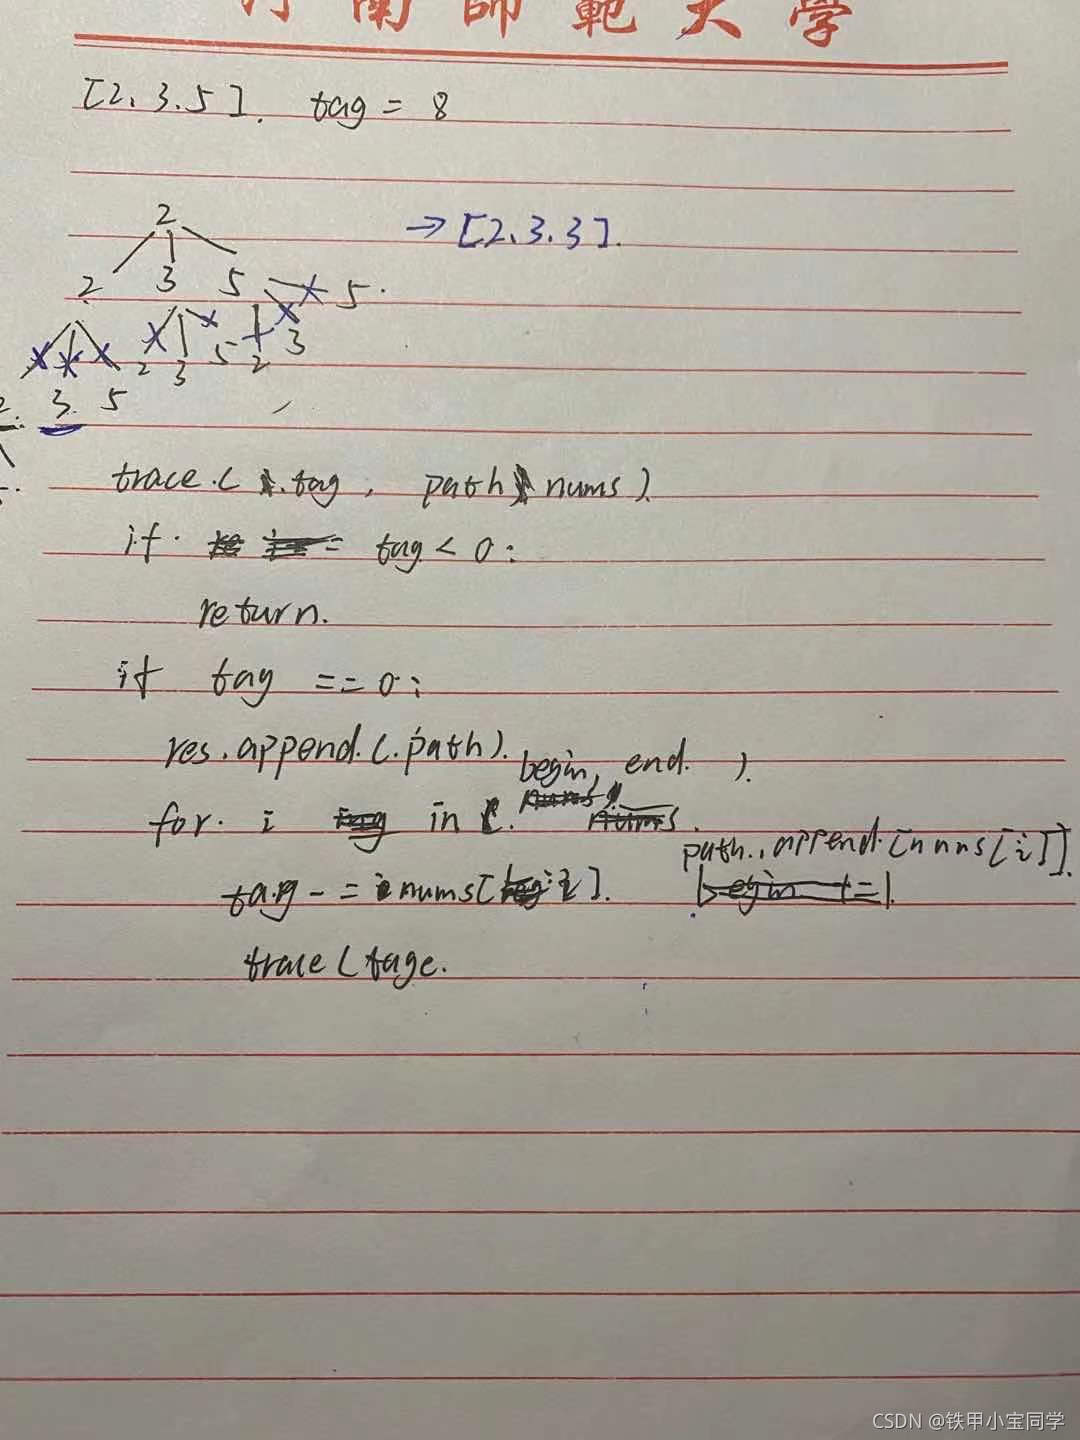 南師範大學
[2, 3, 5]. tag = 8
2
→ [2, 3, 3].
2 3 5 5.
2 3 5 2 3
3. 5
trace.( tag, path nums).
if. tag < 0:
return.
if tag == 0:
res.append.(.path).
begin, end. ).
for. i in (.
path., append.[nums[i]].
tag -= nums[i].
trace(tage.
CSDN @铁甲小宝同学